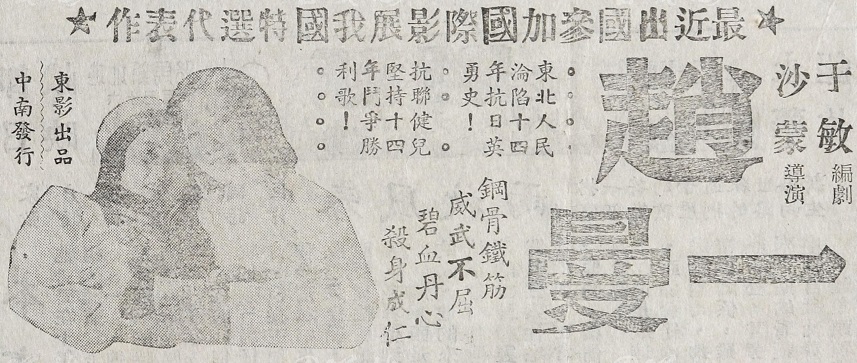 ★最近出國參加國際影展我國特選代表作★
于敏編劇
沙蒙導演
趙
一曼
東北人民
淪陷十四
年抗日英
勇史！
抗聯健兒
堅持十四
年鬥爭勝
利歌！
鋼骨鐵筋
威武不屈
碧血丹心
殺身成仁
東影出品
中南發行